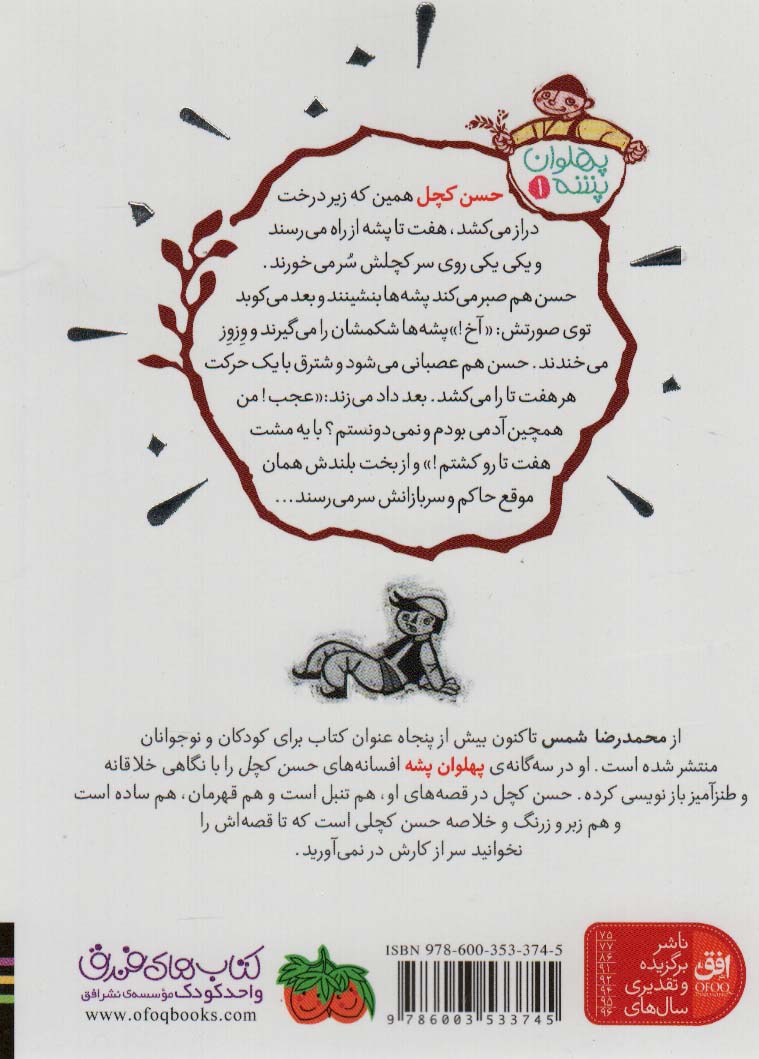 پهلوان
پشه ۱
حسن کچل همین که زیر درخت
دراز می‌کشد، هفت تا پشه از راه می‌رسند
و یکی یکی روی سر کچلش سُر می‌خورند.
حسن هم صبر می‌کند پشه‌ها بنشینند و بعد می‌کوبد
توی صورتش: «آخ!» پشه‌ها شکمشان را می‌گیرند و وِزوِز
می‌خندند. حسن هم عصبانی می‌شود و شترق با یک حرکت
هر هفت تا را می‌کشد. بعد داد می‌زند: «عجب! من
همچین آدمی بودم و نمی‌دونستم؟ با یه مشت
هفت تا رو کشتم!» و از بخت بلندش همان
موقع حاکم و سربازانش سر می‌رسند...
از محمدرضا شمس تاکنون بیش از پنجاه عنوان کتاب برای کودکان و نوجوانان
منتشر شده است. او در سه‌گانه‌ی پهلوان پشه افسانه‌های حسن کچل را با نگاهی خلاقانه
و طنزآمیز باز نویسی کرده. حسن کچل در قصه‌های او، هم تنبل است و هم قهرمان، هم ساده است
و هم زبر و زرنگ و خلاصه حسن کچلی است که تا قصه‌اش را
نخوانید سر از کارش در نمی‌آورید.
کتاب‌های فندق
واحد کودک مؤسسه‌ی نشر افق
www.ofoqbooks.com
ISBN 978-600-353-374-5
9 786003 533745
ناشر
برگزیده
و تقدیری
سال‌های
۷۵
۷۷
۸۶
۹۱
۹۲
۹۴
۹۵
۹۶
افق
OFOQ